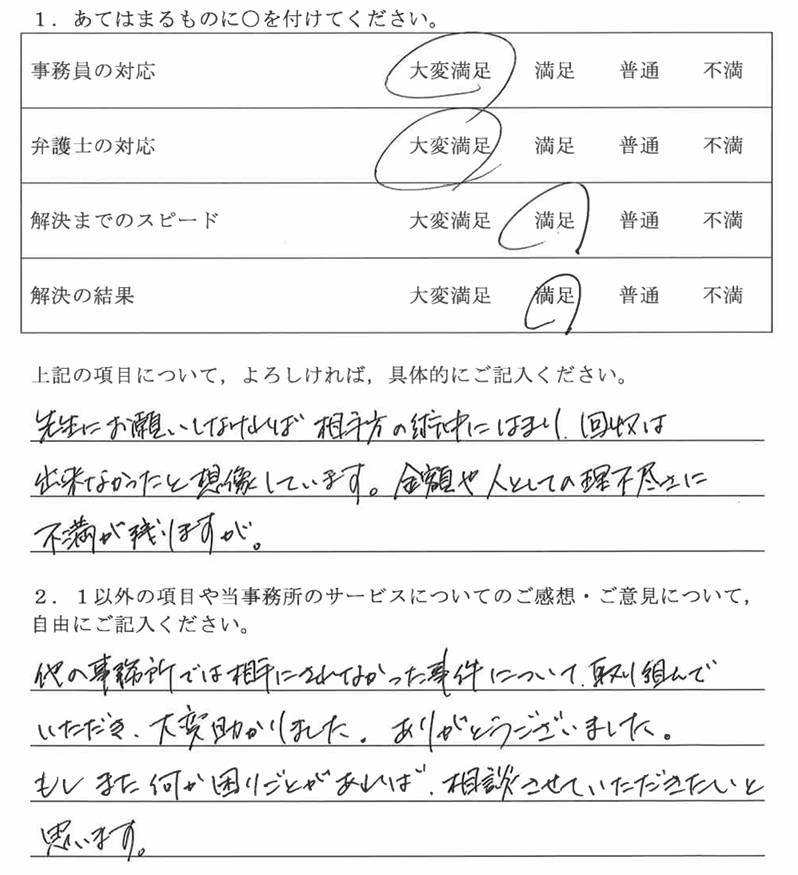 １．あてはまるものに○を付けてください。
事務員の対応 大変満足 満足 普通 不満
弁護士の対応 大変満足 満足 普通 不満
解決までのスピード 大変満足 満足 普通 不満
解決の結果 大変満足 満足 普通 不満
上記の項目について，よろしければ，具体的にご記入ください。
先生にお願いしなければ相手方の術中にはまり、回収は
出来なかったと想像しています。金額や人としての理不尽さに
不満が残りますが。
２．１以外の項目や当事務所のサービスについてのご感想・ご意見について，
自由にご記入ください。
他の事務所では相手にされなかった事件について、取り組んで
いただき、大変助かりました。ありがとうございました。
もしまた何か困りごとがあれば、相談させていただきたいと
思います。